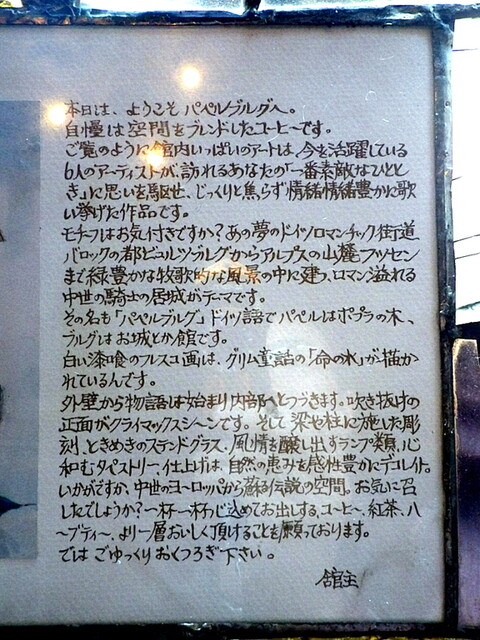 本日は、ようこそ パペルブルグへ。
自慢は空間をブレンドしたコーヒーです。
ご覧のように館内いっぱいのアートは、今を活躍している
6人のアーティストが、訪れるあなたの「一番素敵なひとと
き」に思いを駆せ、じっくりと焦らず情緒情緒豊かに歌
い挙げた作品です。
モチーフはお気付きですか？あの夢のドイツロマンチック街道
バロックの都ビュルツブルグからアルプスの山麓フッセン
まで緑豊かな牧歌的な風景の中に建つ、ロマン溢れる
中世の騎士の居城がテーマです。
その名も「パペルブルグ」ドイツ語でパペルはポプラの木、
ブルグはお城とか館です。
白い漆喰のフレスコ画は、グリム童話の「命の水」が描か
れているんです。
外壁から物語は始まり内部へとつづきます。吹き抜けの
正面がクライマックスシーンです。そして梁や柱に施した彫
刻、ときめきのステンドグラス、風情を醸し出すランプ類、心
和むタペストリー、仕上げは、自然の恵みを感性豊かにデコレイト。
いかがですか、中世のヨーロッパから蘇る伝説の空間。お気に召
したでしょうか？一杯一杯心込めてお出しする、コーヒー、紅茶、ハ
ーブティー、より一層おいしく頂けることを願っております。
では ごゆっくり おくつろぎ下さい。
館主